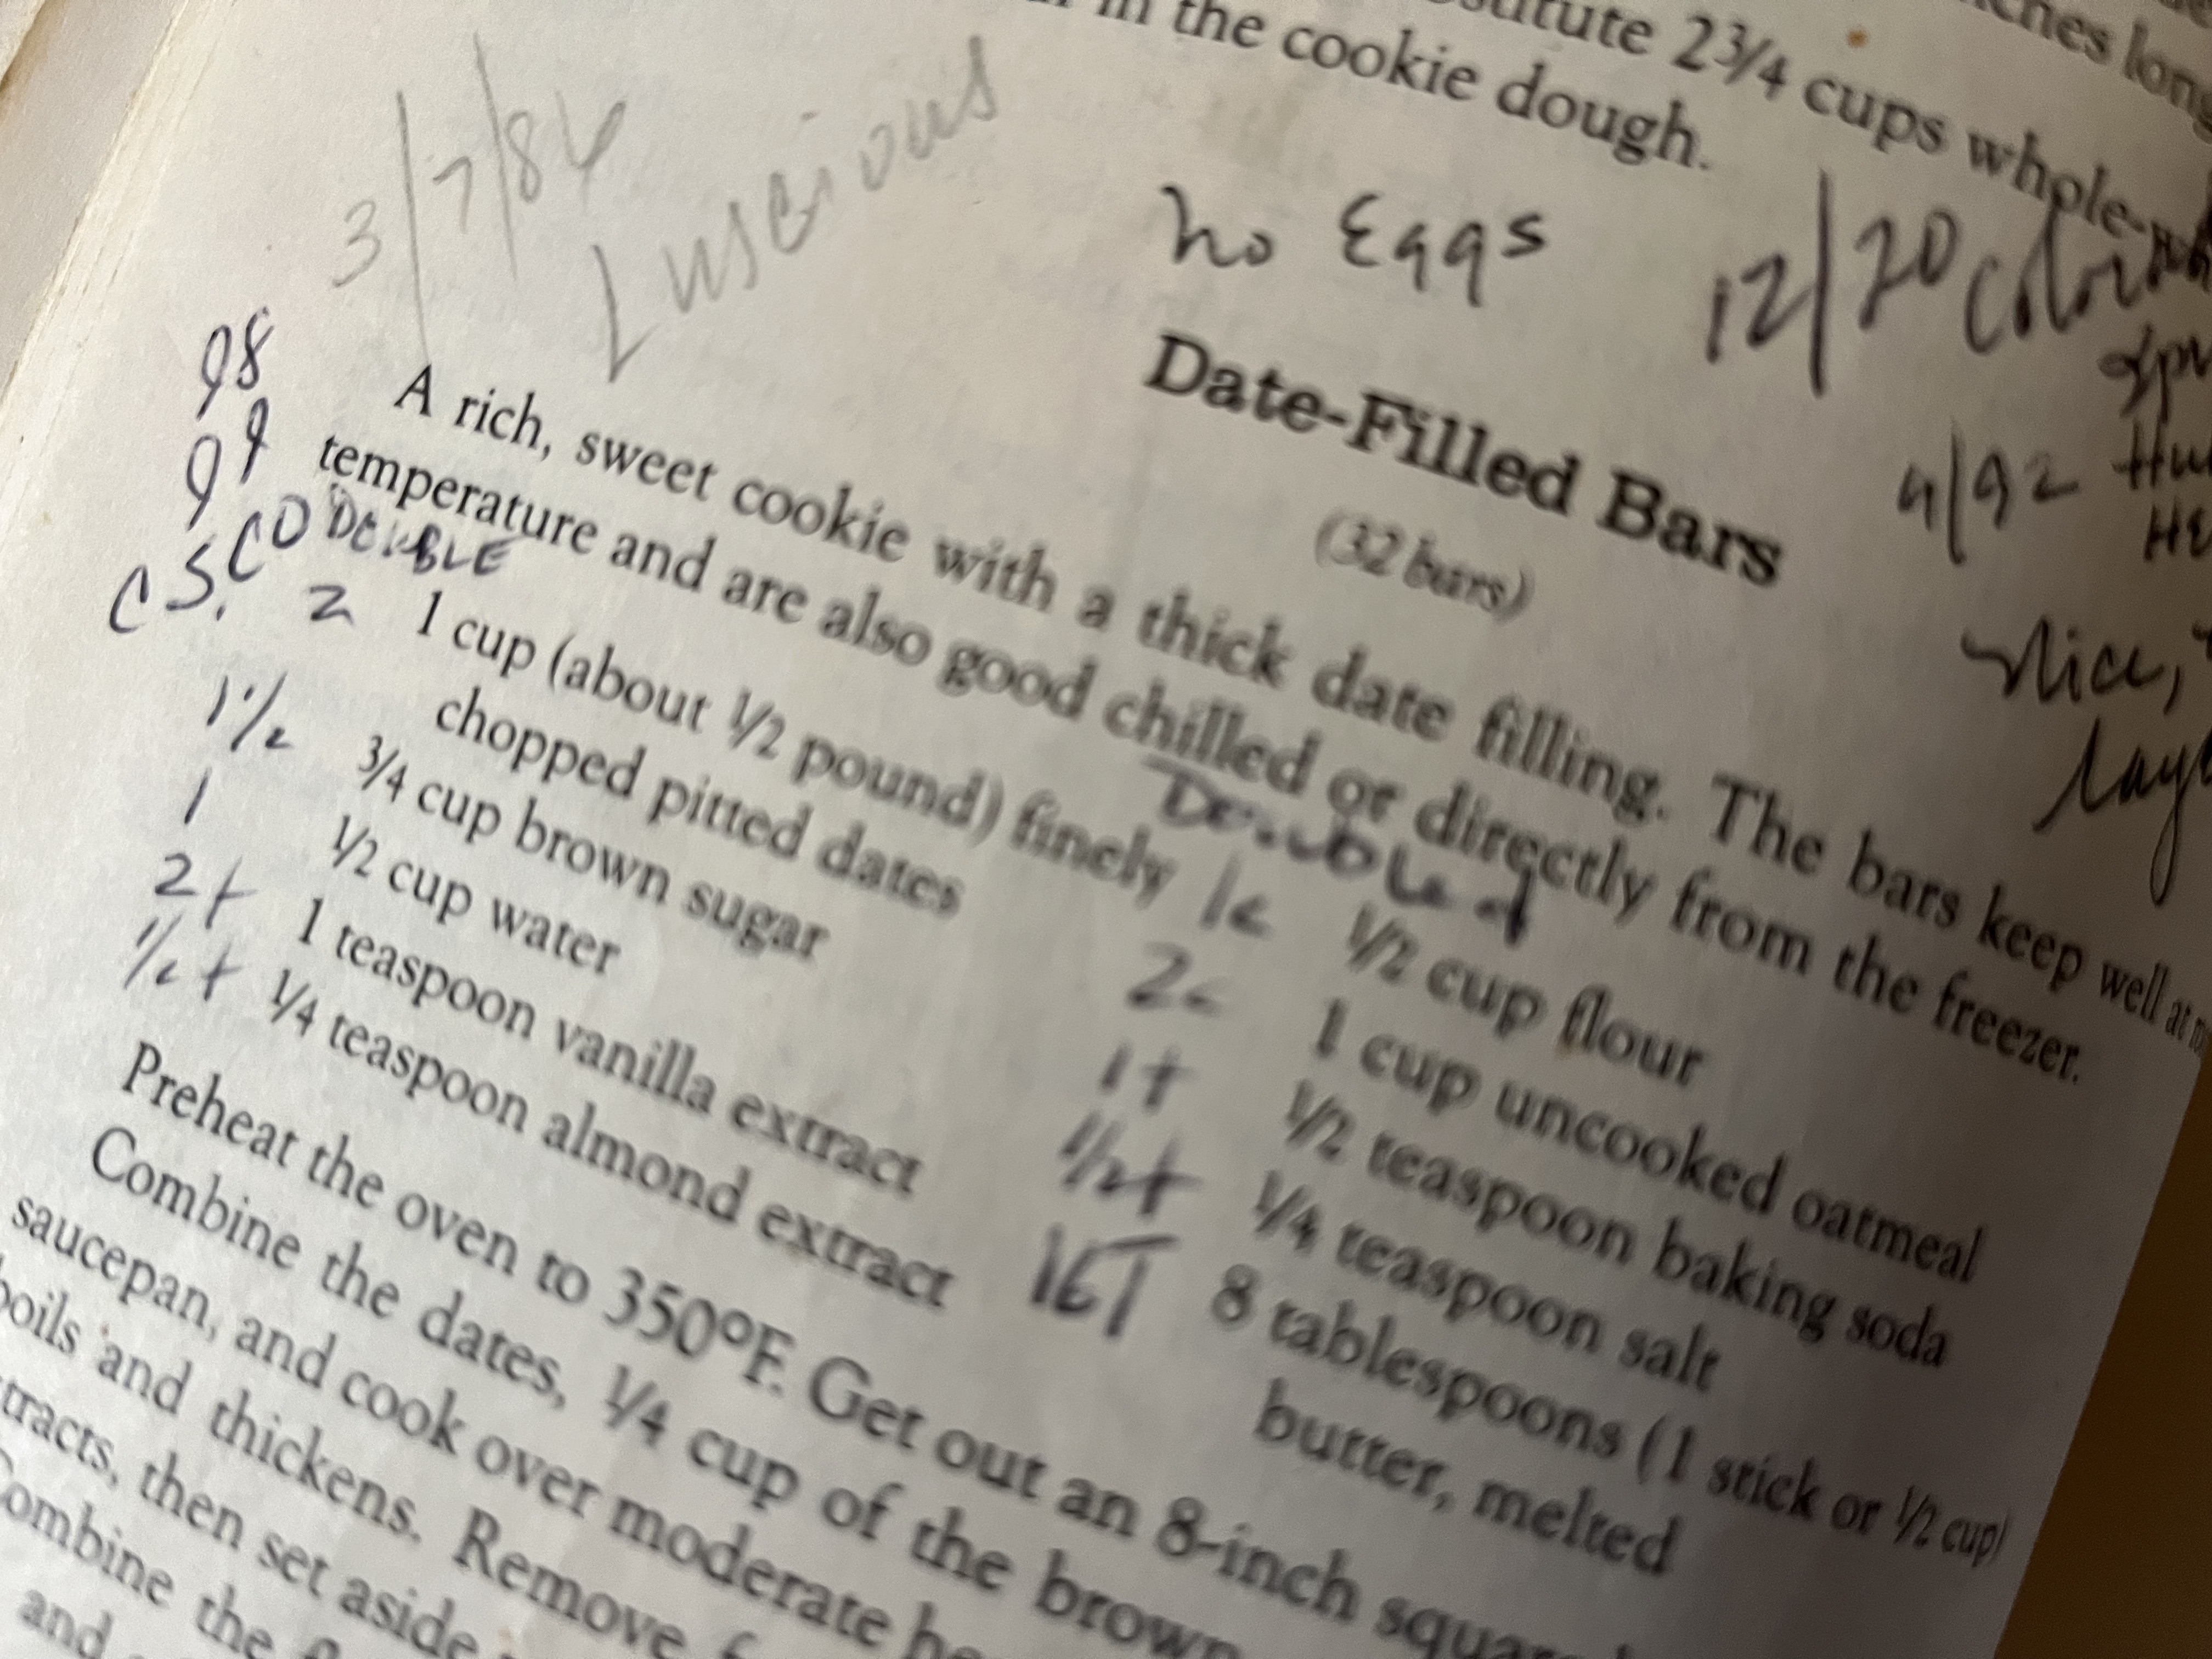 in the cookie dough.
2¾ cups whole-
3/7/86
Luscious
no Eggs
12/20
4/92
Date-Filled Bars
(32 bars)
Nice,
98
99
CO
C S.
A rich, sweet cookie with a thick date filling. The bars keep well at
temperature and are also good chilled or directly from the freezer.
DOUBLE
2 1 cup (about ½ pound) finely
chopped pitted dates
1½ ¾ cup brown sugar
1 ½ cup water
2t 1 teaspoon vanilla extract
½t ¼ teaspoon almond extract
Doubled
1c ½ cup flour
2c 1 cup uncooked oatmeal
1t ½ teaspoon baking soda
1/2t ¼ teaspoon salt
16T 8 tablespoons (1 stick or ½ cup)
butter, melted
Preheat the oven to 350°F. Get out an 8-inch square
Combine the dates, ¼ cup of the brown
saucepan, and cook over moderate
boils and thickens. Remove
then set aside
Combine the
and